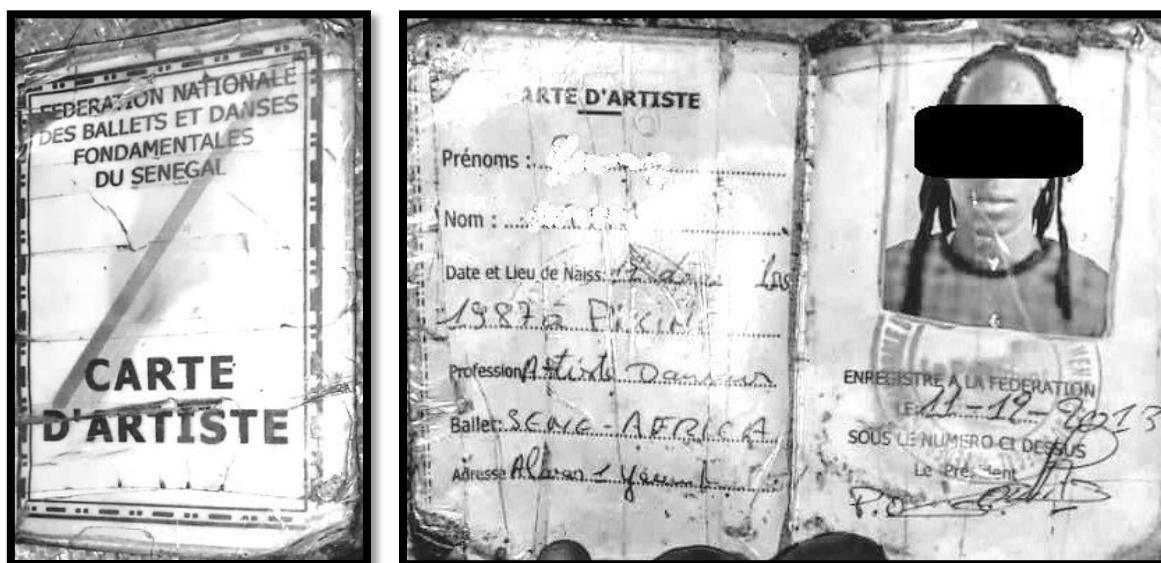 FEDERATION NATIONALE
DES BALLETS ET DANSES
FONDAMENTALES
DU SENEGAL
CARTE
D'ARTISTE
ARTE D'ARTISTE
Prénoms :
Nom :
Date et Lieu de Naiss: 17
1987 à PIKINE
Profession Artiste Danseur
Ballet: SENE-AFRICA
Adresse
ENREGISTRE A LA FEDERATION
LE: 11-12-2013
SOUS LE NUMERO CI DESSUS
Le Président
P.O